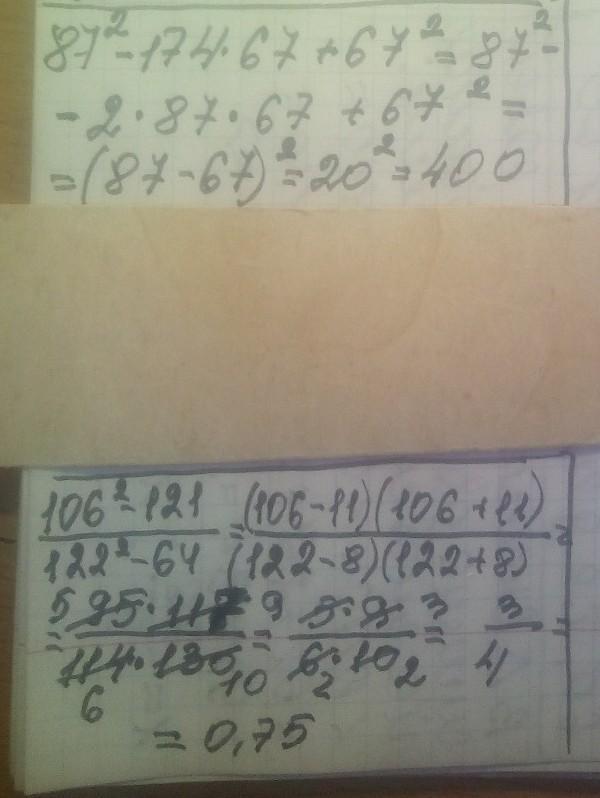 87² - 174 · 67 + 67² = 87² -
- 2 · 87 · 67 + 67² =
= (87 - 67)² = 20² = 400
106² - 121 / 122² - 64 = (106 - 11)(106 + 11) / (122 - 8)(122 + 8) =
= 5 95 · 117 9 / 114 6 · 130 10 = 5 · 9 3 / 6 2 · 10 2 = 3 / 4 =
= 0,75